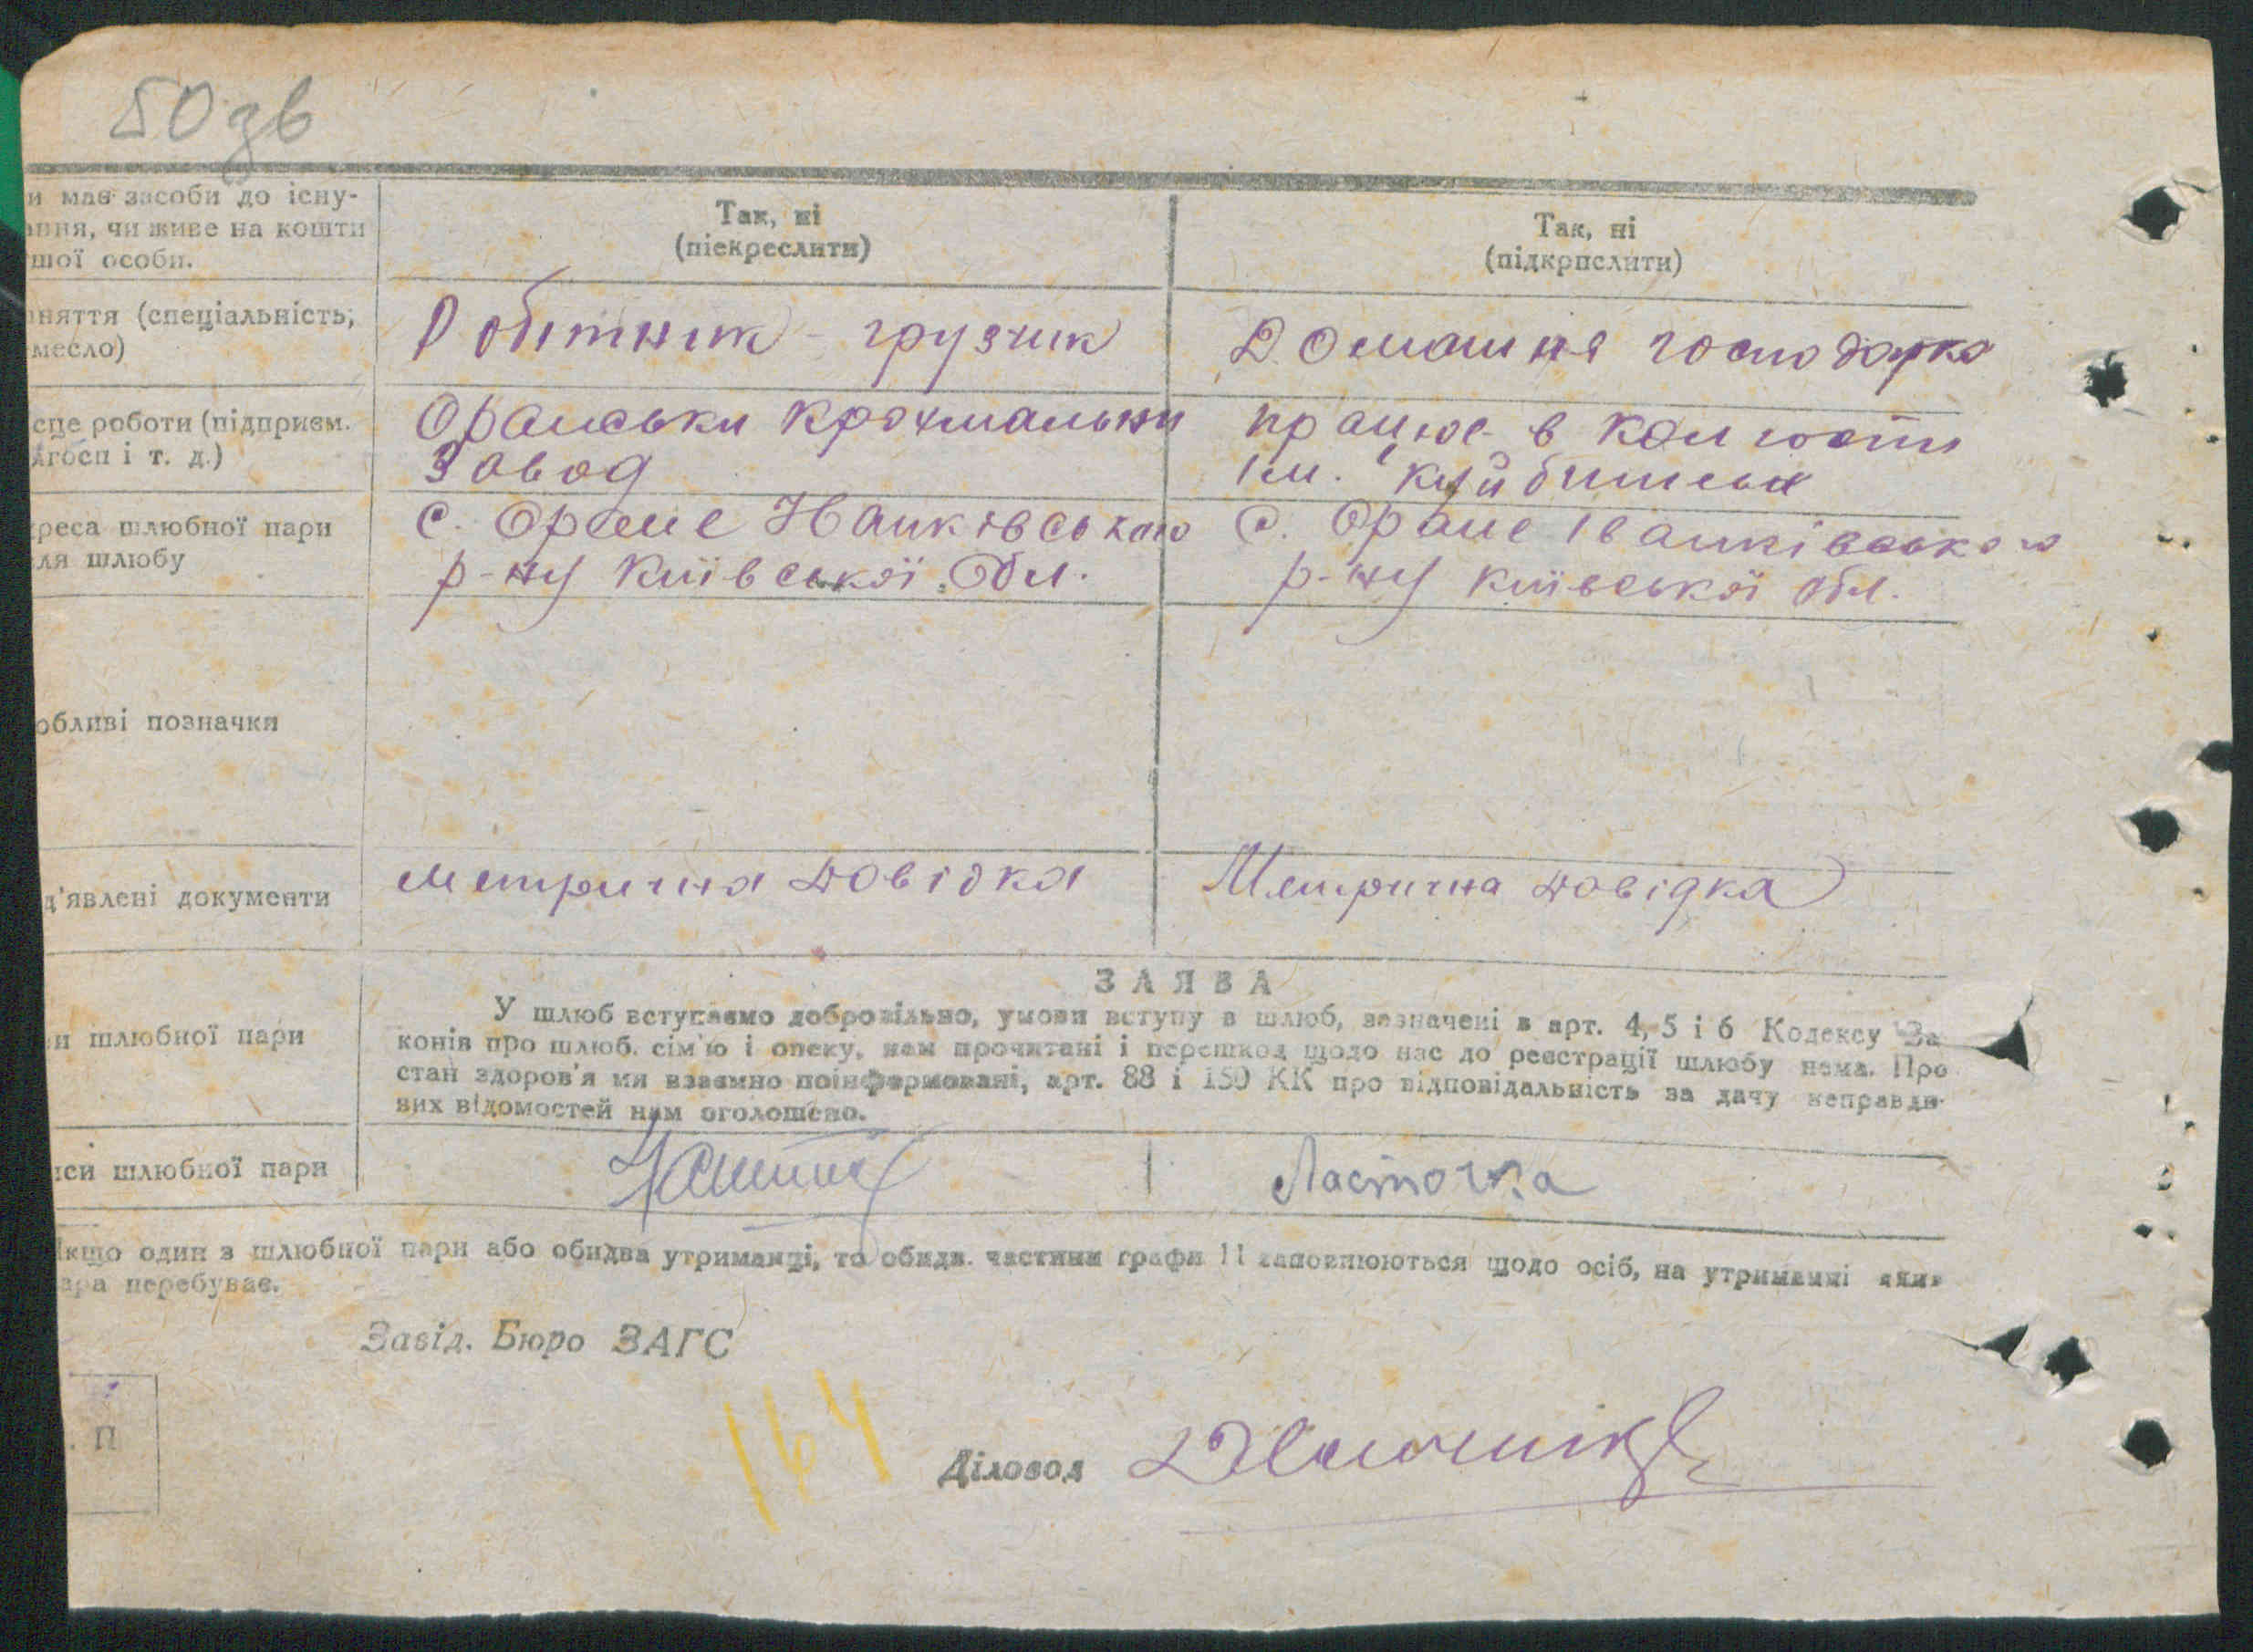 50 зв
и має засоби до існу-
ання, чи живе на кошти
шої особи.
Так, ні
(піекреслити)
Так, ні
(підкрислити)
аняття (спеціальність,
месло)
Робітник - грузчик
Домашня господарка
сце роботи (підприєм.
дгосп і т. д.)
Ораньски крохмальни
завод
працює в колгоспі
ім. Куйбишева
реса шлюбної пари
ля шлюбу
с. Оране Іванківського
р-ну Київської Обл.
с. Оране Іванківського
р-ну Київської Обл.
обливі позначки
д'явлені документи
метрична довідка
Метрична довідка
ЗАЯВА
и шлюбної пари
У шлюб вступаємо добровільно, умови вступу в шлюб, зазначені в арт. 4, 5 і 6 Кодексу За
конів про шлюб. сім'ю і опеку, нам прочитані і перешкод щодо нас до реєстрації шлюбу нема. Про
стан здоров'я ми взаємно поінформовані, арт. 88 і 150 КК про відповідальність за дачу неправди-
вих відомостей нам оголошено.
иси шлюбної пари
Ласточка
Якщо один з шлюбної пари або обидва утриманці, то обидв. частини графи 11 заповнюються щодо осіб, на утриманні яких
ара перебуває.
Завід. Бюро ЗАГС
. П
164
Діловод